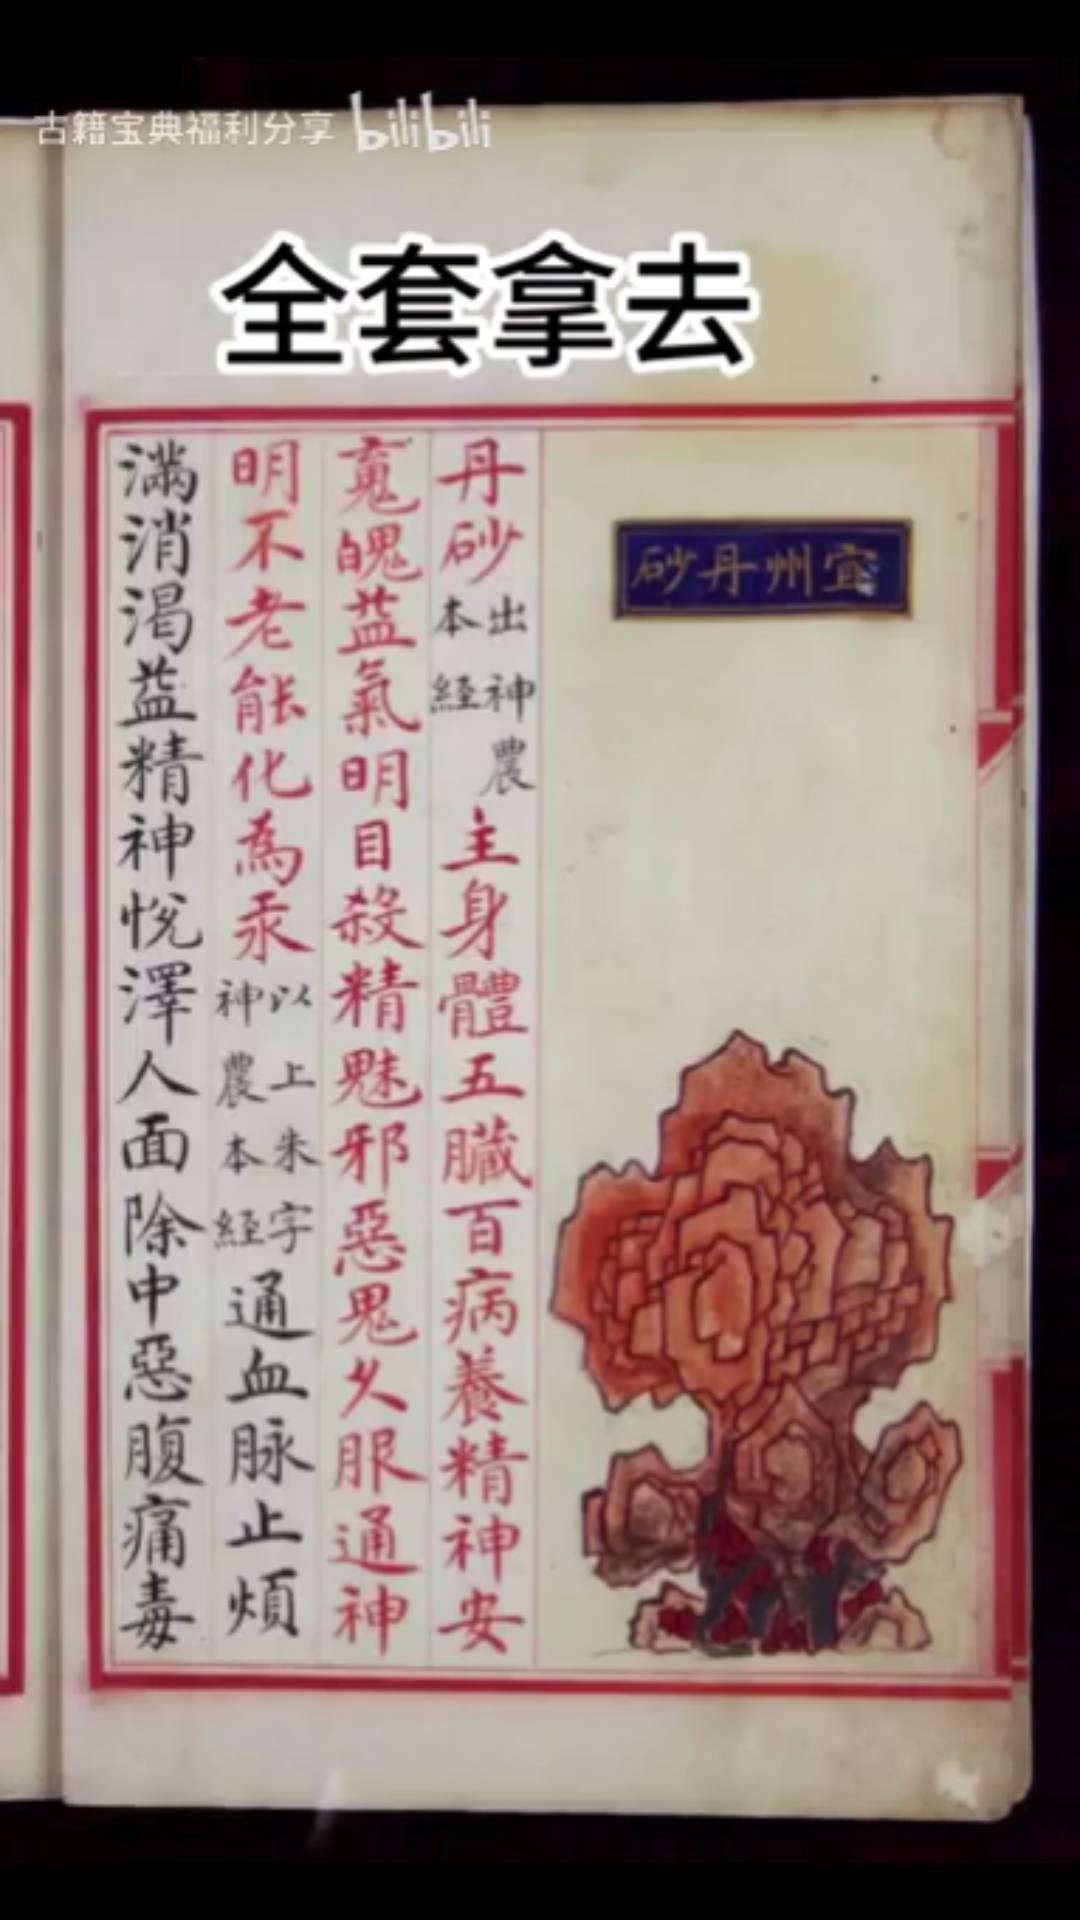 古籍宝典福利分享 bilibili
全套拿去
砂丹州宜
丹砂出神農本經主身體五臟百病養精神安
寬魄益氣明目殺精魅邪惡鬼久服通神
明不老能化為汞以上朱字神農本經通血脉止煩
滿消渴益精神悅澤人面除中惡腹痛毒